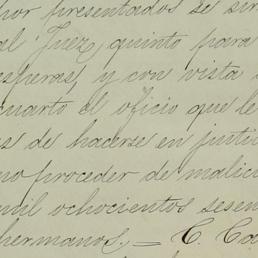 por presentados se sir
al Juez, quinto para
esperas, y con vista
cuarto el oficio que le
s de hacerse en justic
no proceder de malici
mil ochocientos sesen
hermanos. — C. Ca